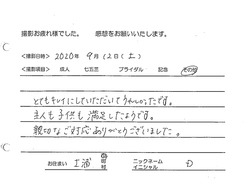 撮影お疲れ様でした。 感想をお願いいたします。
<撮影日> 2020年 9月12日(土)
<撮影項目> 成人 七五三 ブライダル 記念 その他
とてもキレイにしていただいてうれしかったです。
主人も子供も満足したようです。
親切なご対応ありがとうございました。
お住まい 土浦 市 ニックネーム イニシャル D